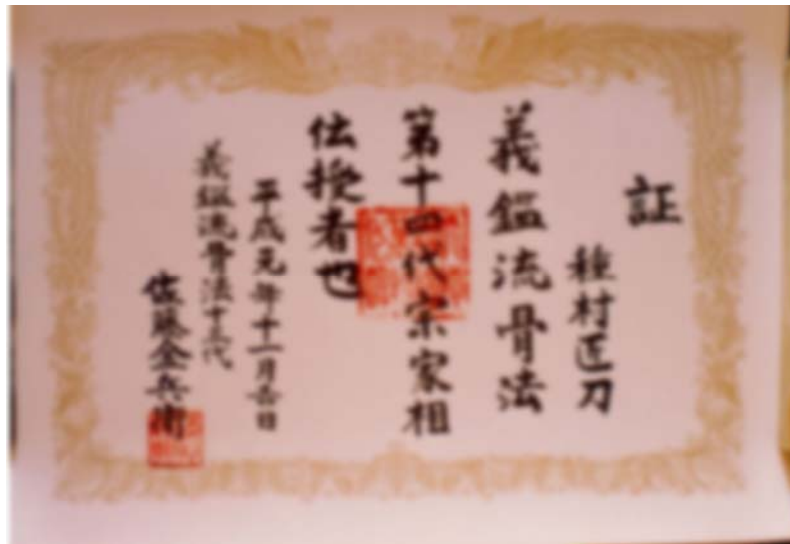 証
種村匠刀
義鑑流骨法
第十四代宗家相
伝授者也
平成元年十一月吉日
義鑑流骨法十三代
佐藤金兵衛